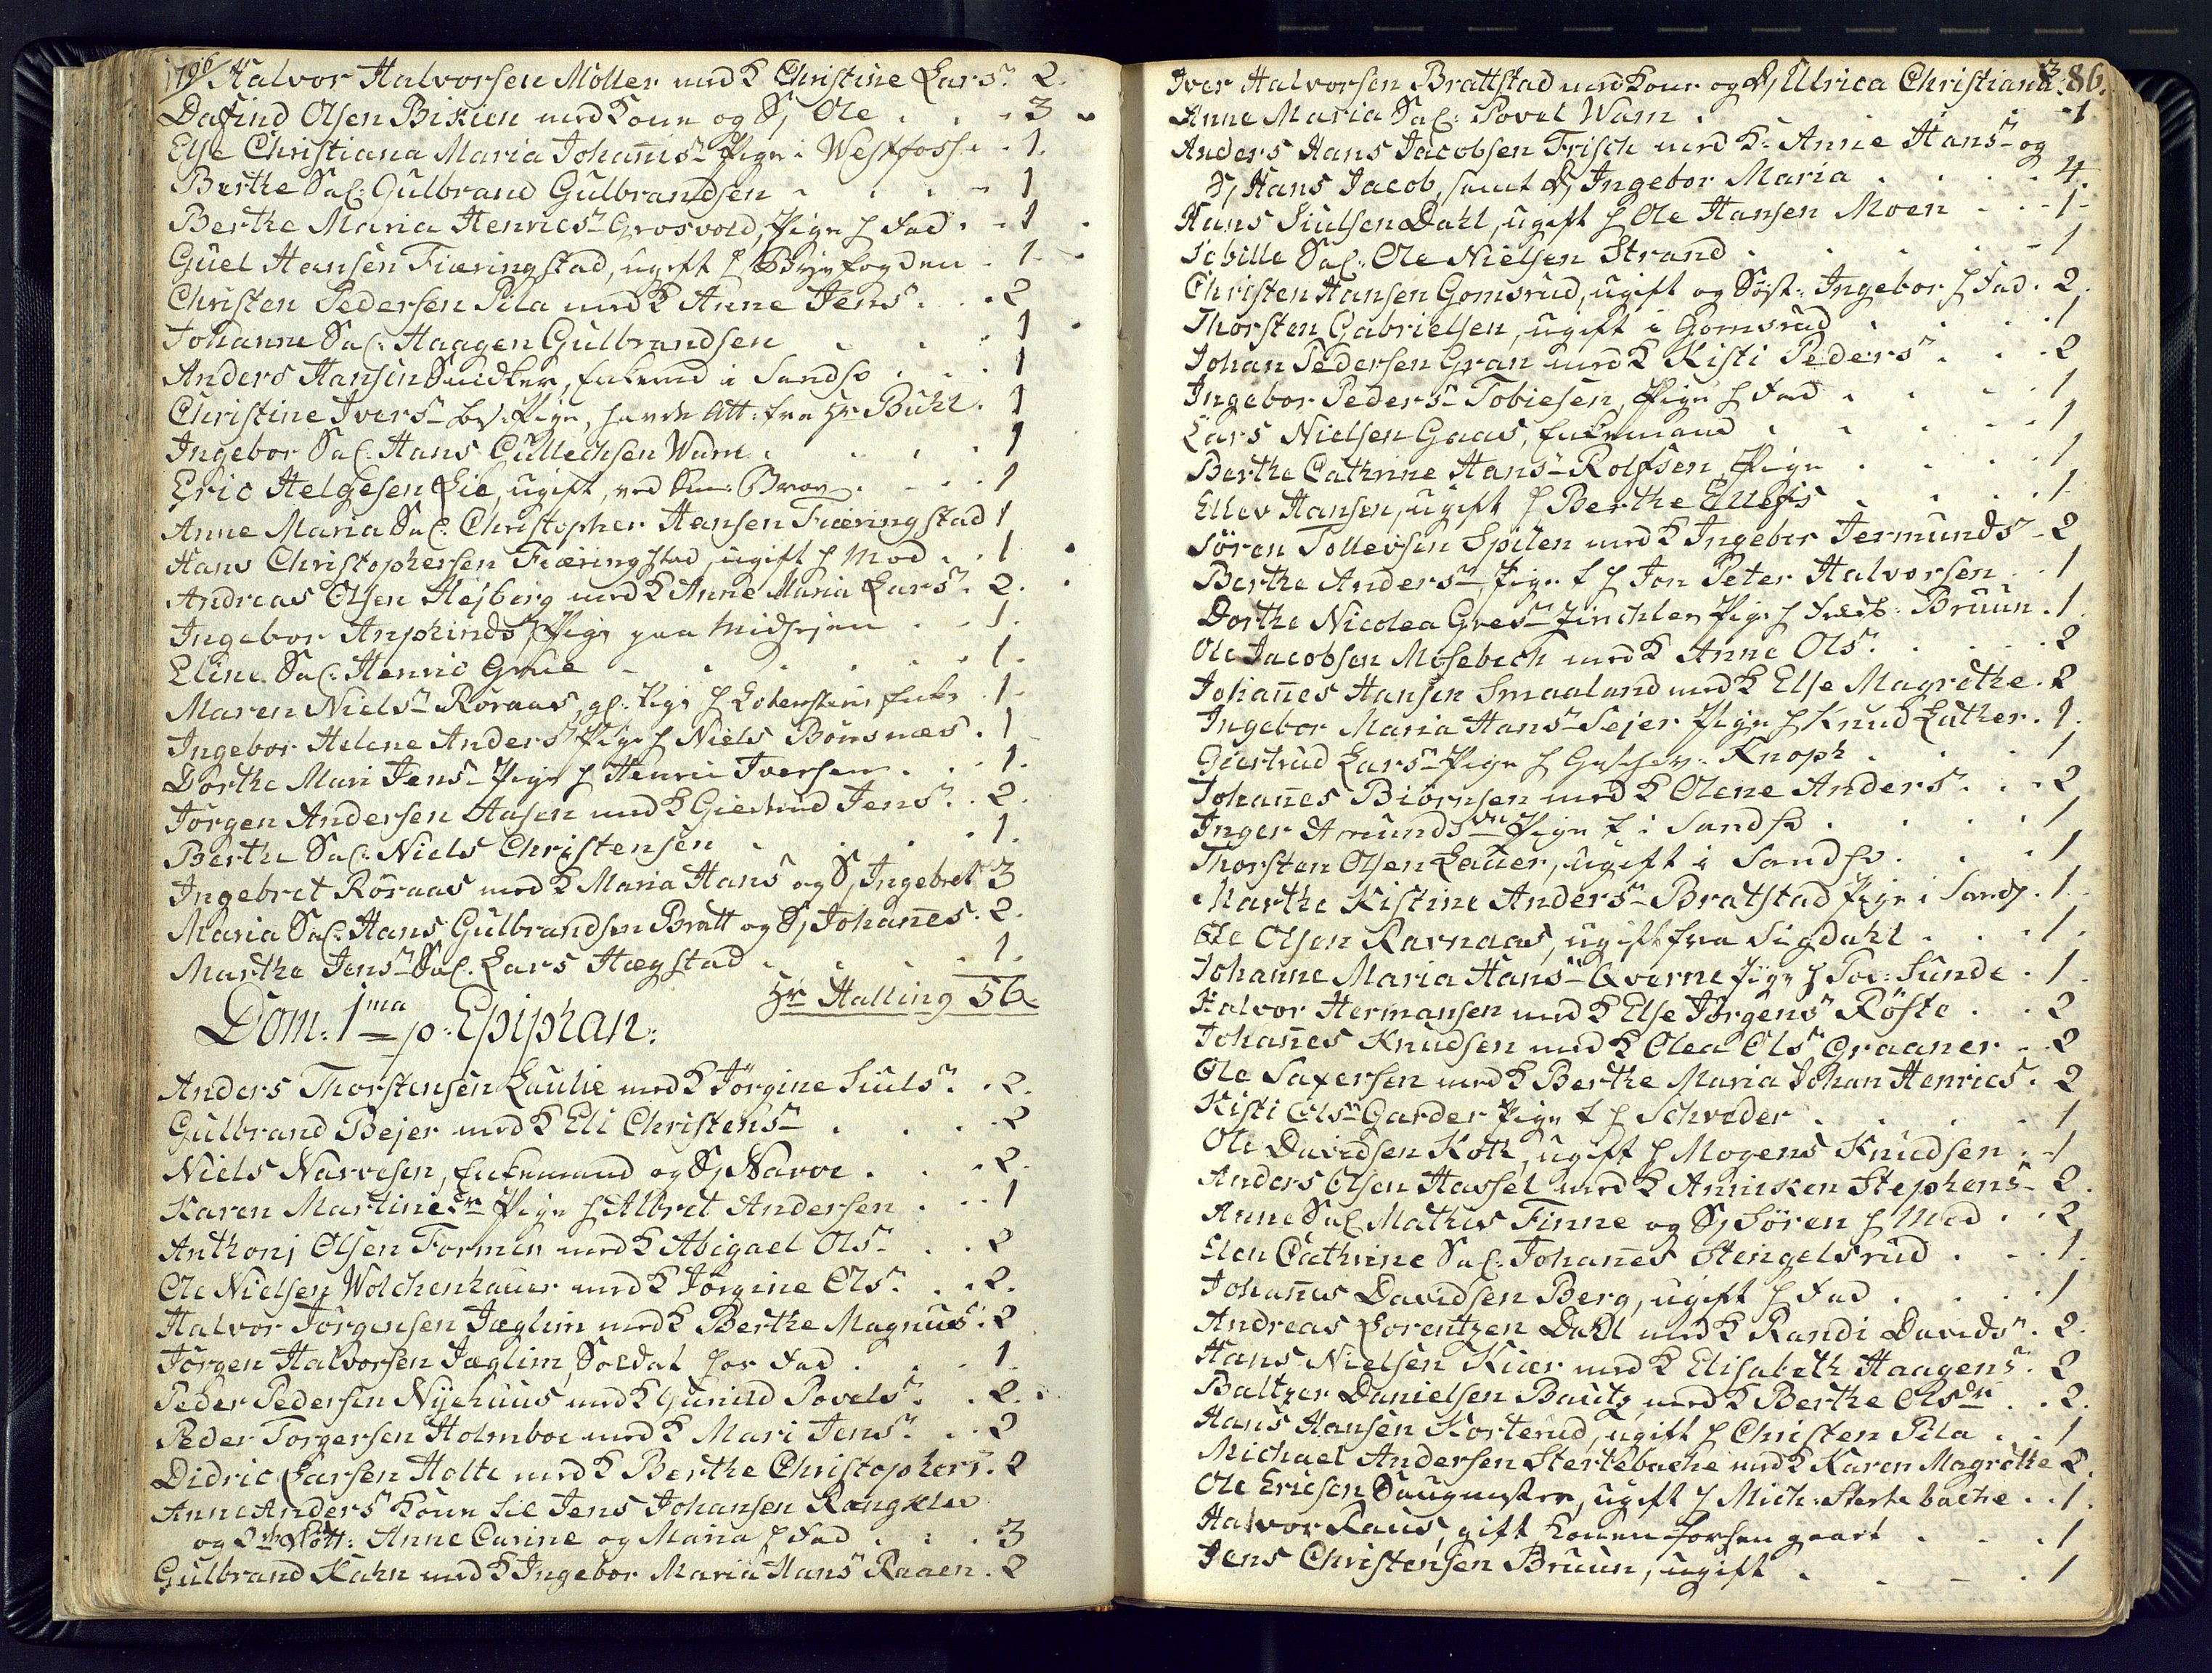 1796/ Halvor Halvorsen Möller med K Christine Larsn 2.
Dafind Olsen Bikien med Kone og S/ Ole . . . 3
Else Christiana Maria Johañisn Pige i Westfoss . . 1.
Berthe Sal: Gulbrand Gulbrandsen . . . 1
Berthe Maria Henricsn Grosvold, Pige h Fad . . 1
Guel Hansen Fiæringstad, ugift h Byefogden . 1
Christen Pedersen Pila med K Anne Jensn . . . 2
Johanne Sal: Haagen Gulbrandsen . . . 1
Anders Hansen Snidker, Enkemd i Sandsv . . . 1
Christine Iversn Pige, havde Att: fra Hr Buhl . 1
Ingebor Sal. Hans Gullechsen Warn . . . . 1
Eric Helgesen Lie, ugift, ved . . . 1
Anne Maria Sal. Christopher Hansen Fiæringstad 1
Hans Christophersen Fiæringstad, ugift h Mod . . 1
Andreas Olsen Hejberg med K Anne Maria Larsn . 2.
Ingebor Anphindsn Pige paa . . 1.
Eline Sal. Henric Grue . . . . 1.
Maren Nielsn Röraas, gl. Pige h Enke . 1.
Ingebor Helene Andersn Pige h Niels Bönsnæs . 1
Dorthe Mari Jensn Pige h Henric Iversen . . 1.
Jörgen Andersen Aasen med K Giertrud Jensn . . 2.
Berthe Sal. Niels Christensen . . . 1.
Ingebret Röraas med K Maria Hans og S/ Ingebret 3
Maria Sal. Hans Gulbrandsen Bratt og S/ Johañes . 2.
Marthe Jensn Sal. Lars Hægstad . . . . 1.
Hr Halling 56
Dom: 1ma p: Epiphan:
Anders Thorstensen Laulie med K Jörgine Siulsn . . 2.
Gulbrand Bejer med K Eli Christensn . . . 2
Niels Narvesen, Enkemand og S/ Narve . . . 2.
Karen Martinisdr Pige h Albret Andersen . . . 1
Anthonj Olsen Formen med K Abigael Olsn . . 2
Ole Nielsen Wolchenhauer med K Jörgine Olsn . . 2.
Halvor Jörgensen Jæglim med K Berthe Magnusn . 2
Jörgen Halvorsen Jæglim, Soldat hos Fad . . . 1.
Peder Pedersen Nyehuus med K Gunild Povelsn . . 2.
Peder Torgersen Holmboe med K Mari Jensn . . 2
Didric Larsen Holte med K Berthe Christophersn . 2
Anne Andersn Kone til Jens Johansen Rangklev
og 2de Dött: Anne Carine og Maria h Fad . . . 3
Gulbrand Kahn med K Ingebor Maria Hansn Raaen . 2
Iver Halvorsen Brattstad med Kone og D/ Ulrica Christiana . 3
86.
Anne Maria Sal: Povel Warn . . . 1
Anders Hans Jacobsen Frisch med K. Anne Hansn og
S/ Hans Jacob, samt D/ Ingebor Maria . . . . 4.
Hans Siulsen Dahl, ugift h Ole Hansen Moen . . . 1
Sebille Sal. Ole Nielsen Strand . . . . 1
Christen Hansen Gomsrud, ugift og Söst: Ingebor h Fad . 2.
Thorsten Gabrielsen, ugift i Gomsrud . . . . 1
Johan Pedersen Gran med K Kisti Pedersn . . . 2
Ingebor Pedersn Tobiesen, Pige h Fad . . . . 1
Lars Nielsen Gaas, Enkemand . . . . 1
Berthe Cathrine Hansn Rolfsen, Pige . . . . 1
Ellev Hansen, ugift h Berthe Ellefs . . . . 1
Sören Tollevsen Spiten med K Ingebor Jermundsn . 2
Berthe Andersn Pige t h Jon Peter Halvorsen . . 1
Dorthe Nicolea Gresn Zinchler Pige h Bruun . 1
Ole Jacobsen Mosebech med K Anne Olsn . . . . 2
Johañes Hansen Smaaland med K Else Magrethe . 2
Ingebor Maria Hansn Sejer Pige h Knud Luther . 1.
Giertrud Larsn Pige h Knoph . . . . 1
Johañes Biörnsen med K Olene Andersn . . . 2
Inger Amundsdr Pige t i Sandsv . . . . 1
Thorsten Olsen Lauer, ugift i Sandsv . . . 1
Marthe Kistine Andersn Bratstad Pige i Sands . 1
Ole Olsen Ravnaas, ugift fra Sigdahl . . . 1.
Johanne Maria Hansn Qverne Pige h Sunde . 1
Halvor Hermansen med K Else Jörgensn Röste . . 2
Johañes Knudsen med K Olea Olsn Graaner . . 2
Ole Saxersen med K Berthe Maria Johan Henrics . 2
Kisti Olsn Garder Pige t h Schreder . . . . 1
Ole Davidsen Koth, ugift h Mogens Knudsen . . 1
Anders Olsen Hassel med K Anniken Stephensn 2.
Anne Sal Mathis Finne og S/ Sören h Mod . . 2
Elen Cathrine Sal. Johañes Stengelsrud . . . 1.
Johañes Davidsen Berg, ugift h Fad . . . . 1
Andreas Lorentzen Dahl med K Randi Davidsn . 2.
Hans Nielsen Kiær med K Elisabeth Haagensn . 2
Baltzer Danielsen Bautz med K Berthe Olsdr . . 2.
Hans Hansen Korterud, ugift h Christen Pila . . 1
Michael Andersen Stertebache med K Karen Magrethe 2.
Ole Ericsen Saugmester, ugift h Mich: Stertebache . . 1.
Halvor Raus, gift Konen forhen gaaet . . . 1
Jens Christensen Bruun, ugift . . . . 1